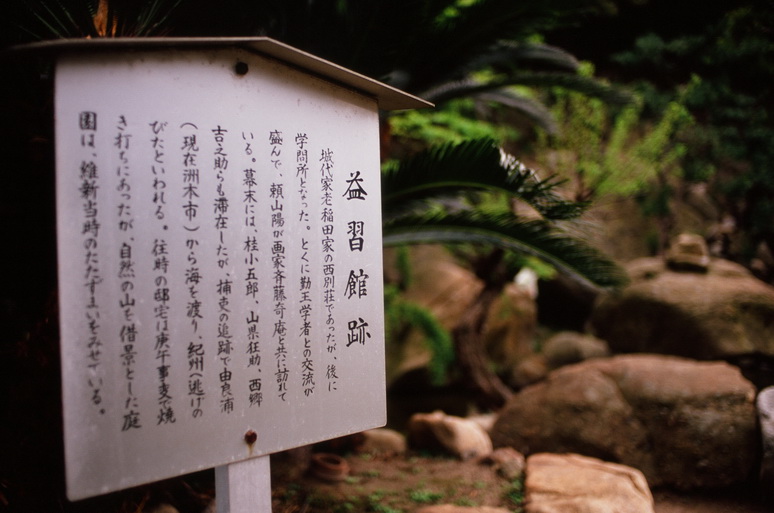 益習館跡
城代家老稲田家の西別荘であったが、後に
学問所となった。とくに勤王学者との交流が
盛んで、頼山陽が画家斉藤奇庵と共に訪れて
いる。幕末には、桂小五郎、山県狂助、西郷
吉之助らも滞在したが、捕吏の追跡で由良浦
（現在洲本市）から海を渡り、紀州へ逃げの
びたといわれる。往時の邸宅は庚午事変で焼
き打ちにあったが、自然の山を借景とした庭
園は、維新当時のたたずまいをみせている。